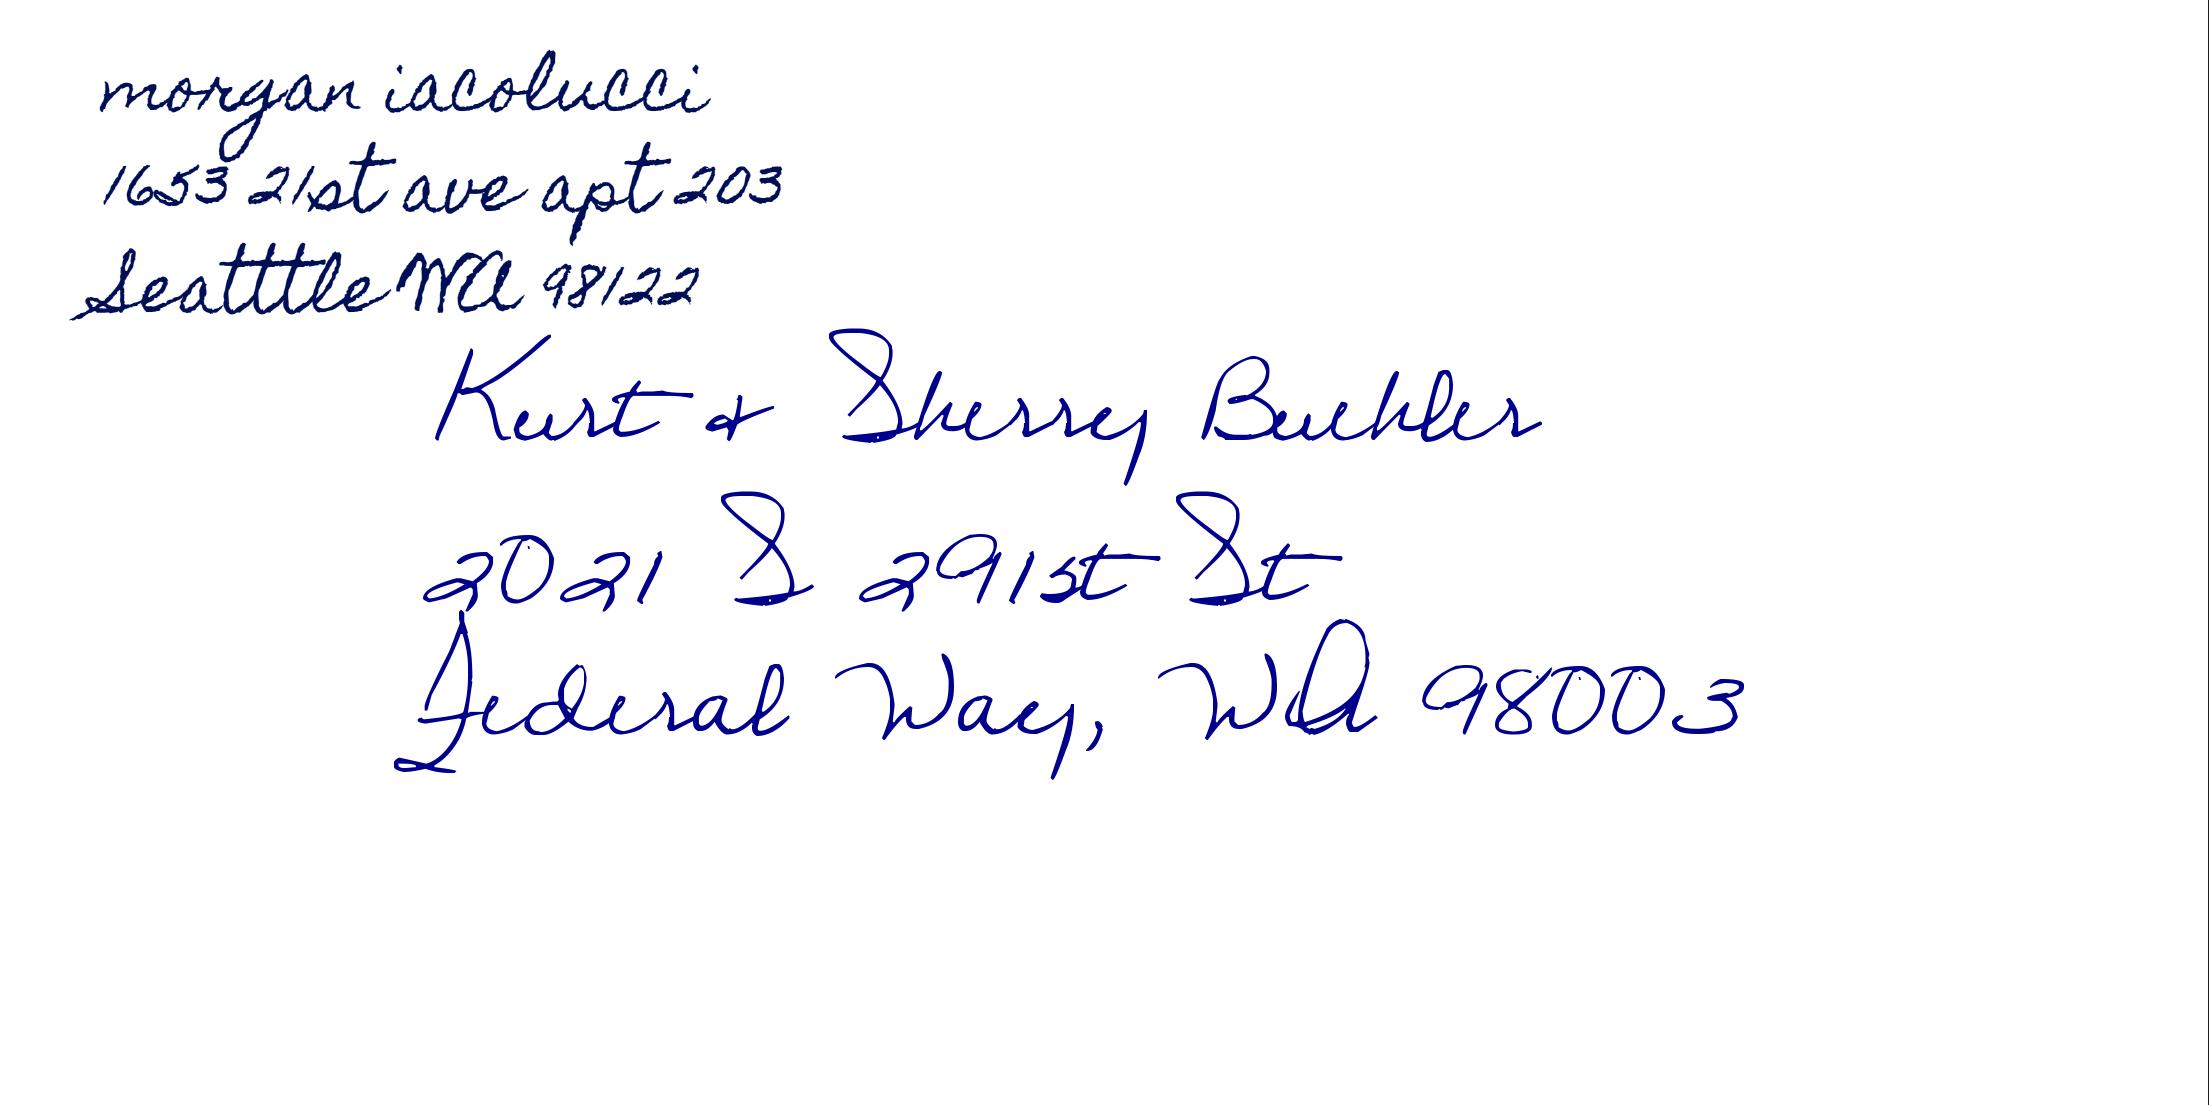 morgan iacolucci
1653 21st ave apt 203
Seatttle WA 98122
Kurt & Sherry Buehler
2021 S 291st St
Federal Way, WA 98003